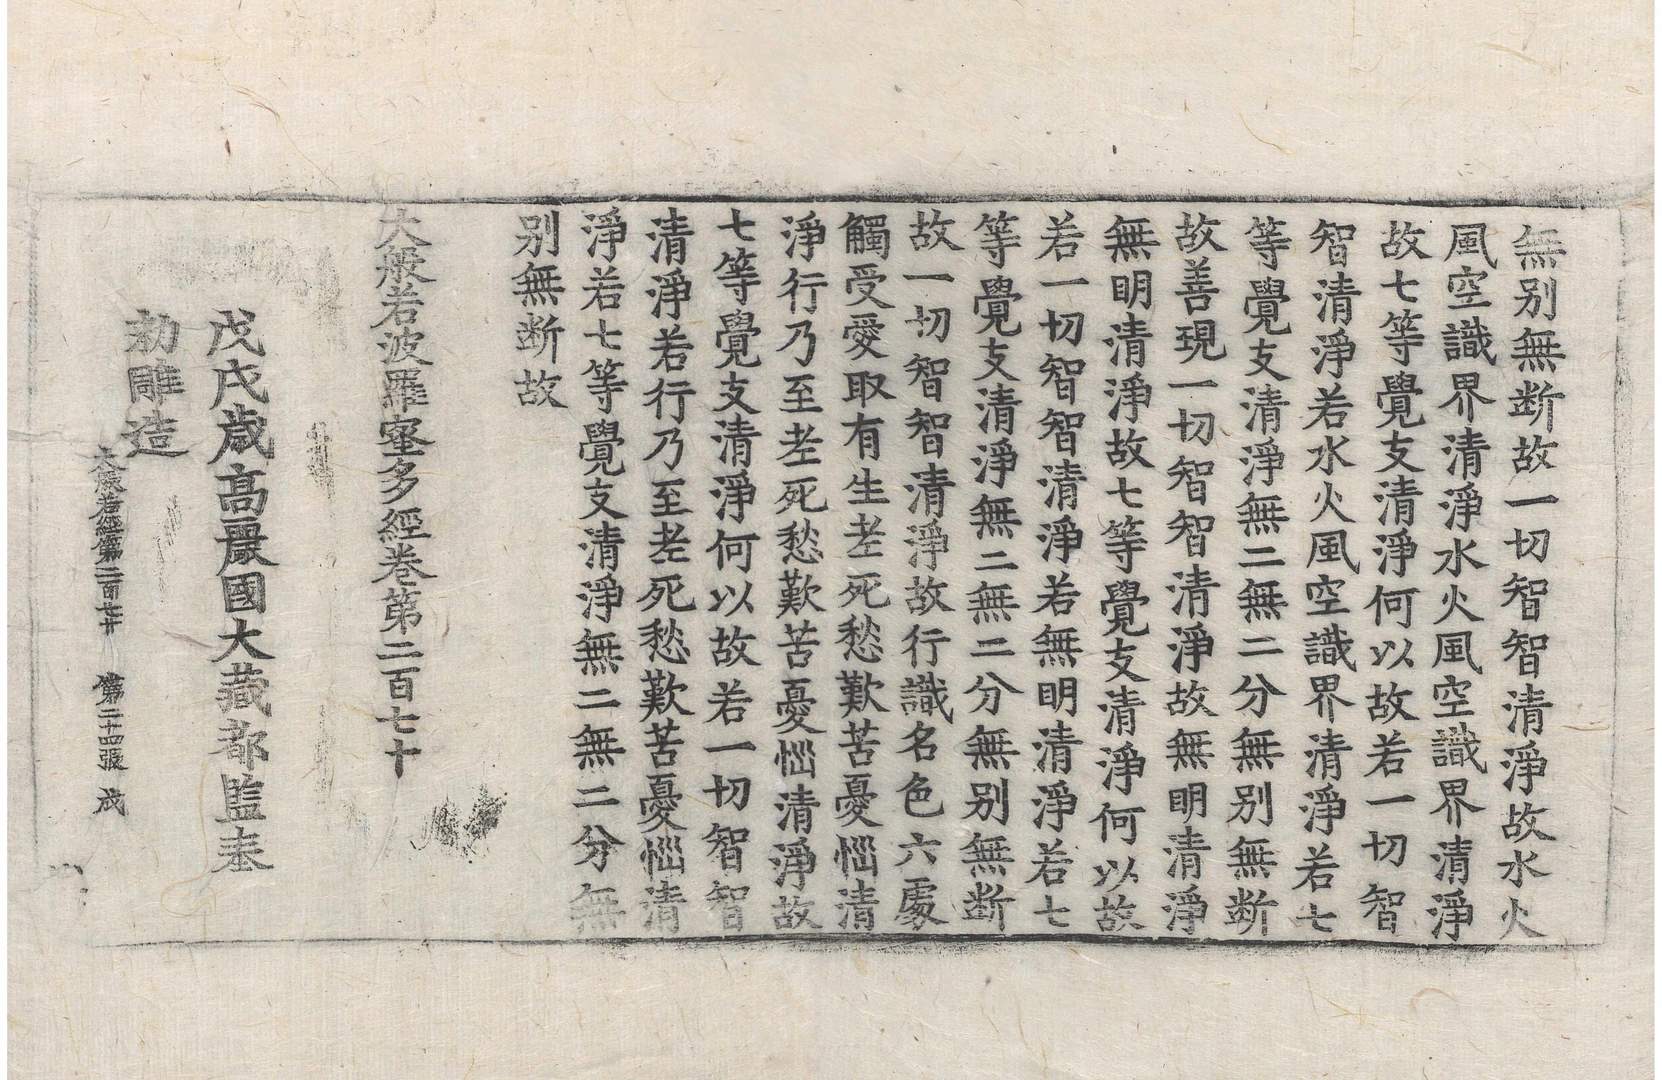 無別無断故一切智智清淨故水火
風空識界清淨水火風空識界清淨
故七等覺支清淨何以故若一切智
智清淨若水火風空識界清淨若七
等覺支清淨無二無二分無別無断
故善現一切智智清淨故無明清淨
無明清淨故七等覺支清淨何以故
若一切智智清淨若無明清淨若七
等覺支清淨無二無二分無別無断
故一切智智清淨故行識名色六處
觸受愛取有生老死愁歎苦憂惱清
淨行乃至老死愁歎苦憂惱清淨故
七等覺支清淨何以故若一切智智
清淨若行乃至老死愁歎苦憂惱清
淨若七等覺支清淨無二無二分無
別無断故
大般若波羅蜜多經卷第二百七十
戊戌歲高麗國大藏都監奉
勑雕造
大般若經第二百七十 第二十四張 戍